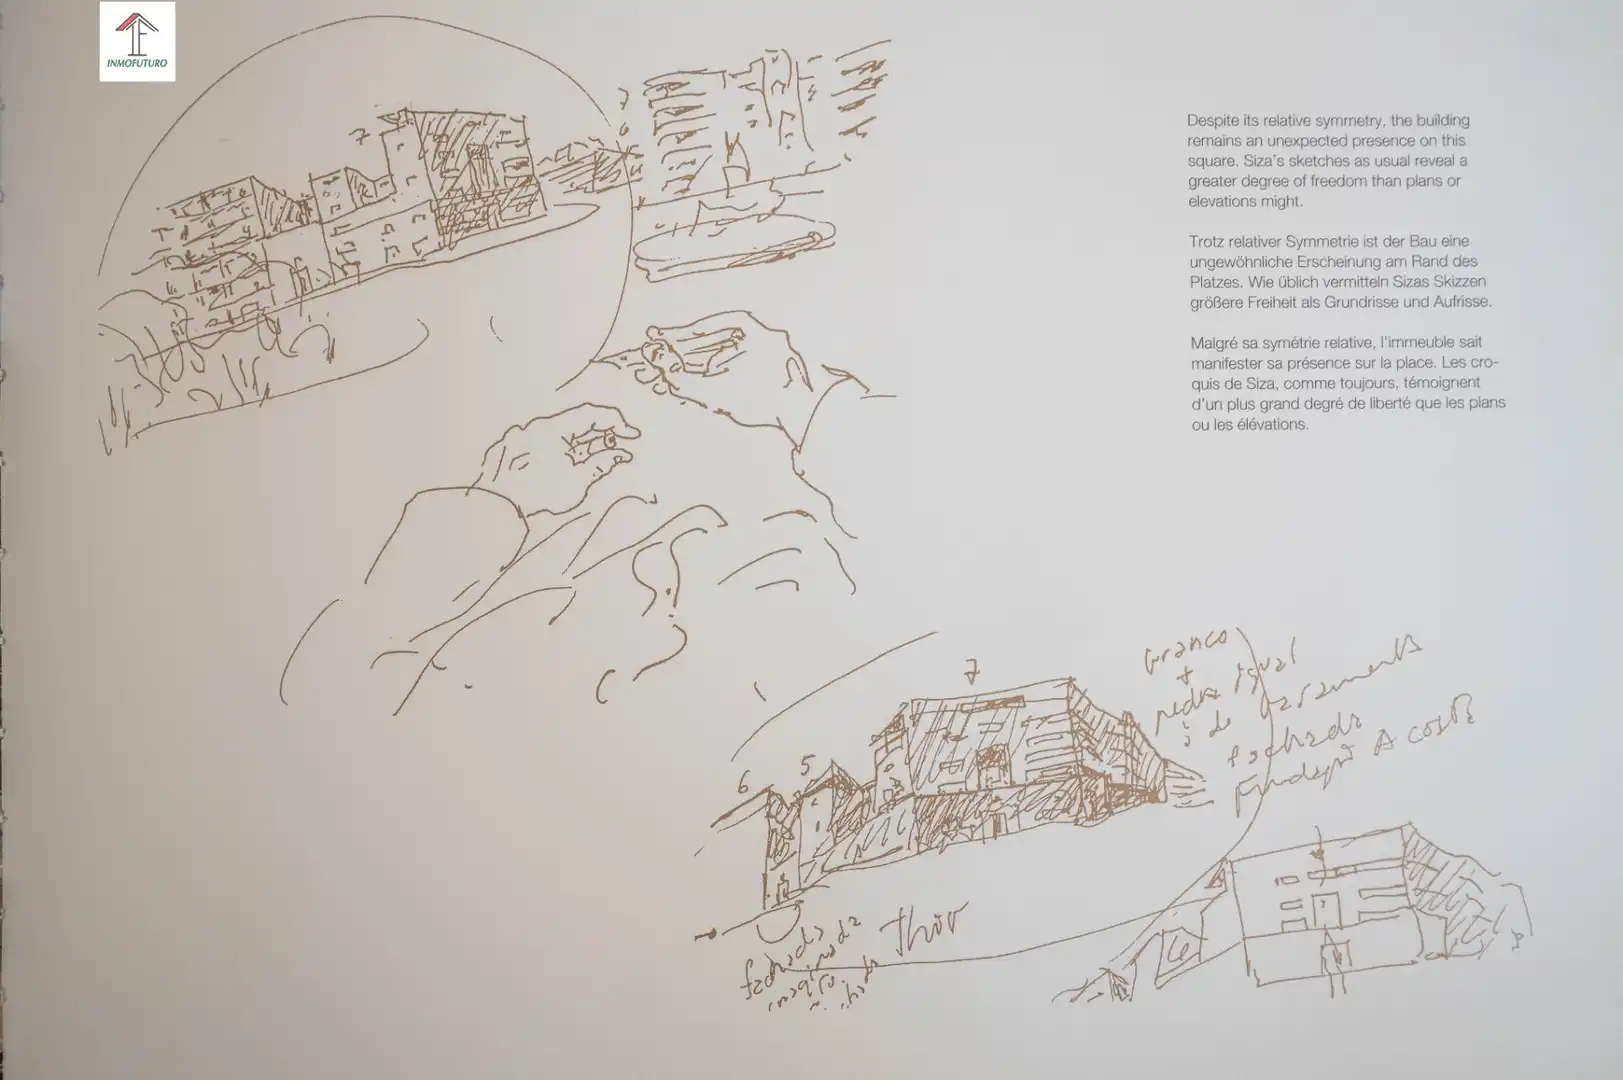 INMOFUTURO
7
7
6
Despite its relative symmetry, the building
remains an unexpected presence on this
square. Siza's sketches as usual reveal a
greater degree of freedom than plans or
elevations might.
Trotz relativer Symmetrie ist der Bau eine
ungewöhnliche Erscheinung am Rand des
Platzes. Wie üblich vermitteln Sizas Skizzen
größere Freiheit als Grundrisse und Aufrisse.
Malgré sa symétrie relative, l'immeuble sait
manifester sa présence sur la place. Les cro-
quis de Siza, comme toujours, témoignent
d'un plus grand degré de liberté que les plans
ou les élévations.
7
5
6
branco
+
pedra igual
à do
fachada
fachada